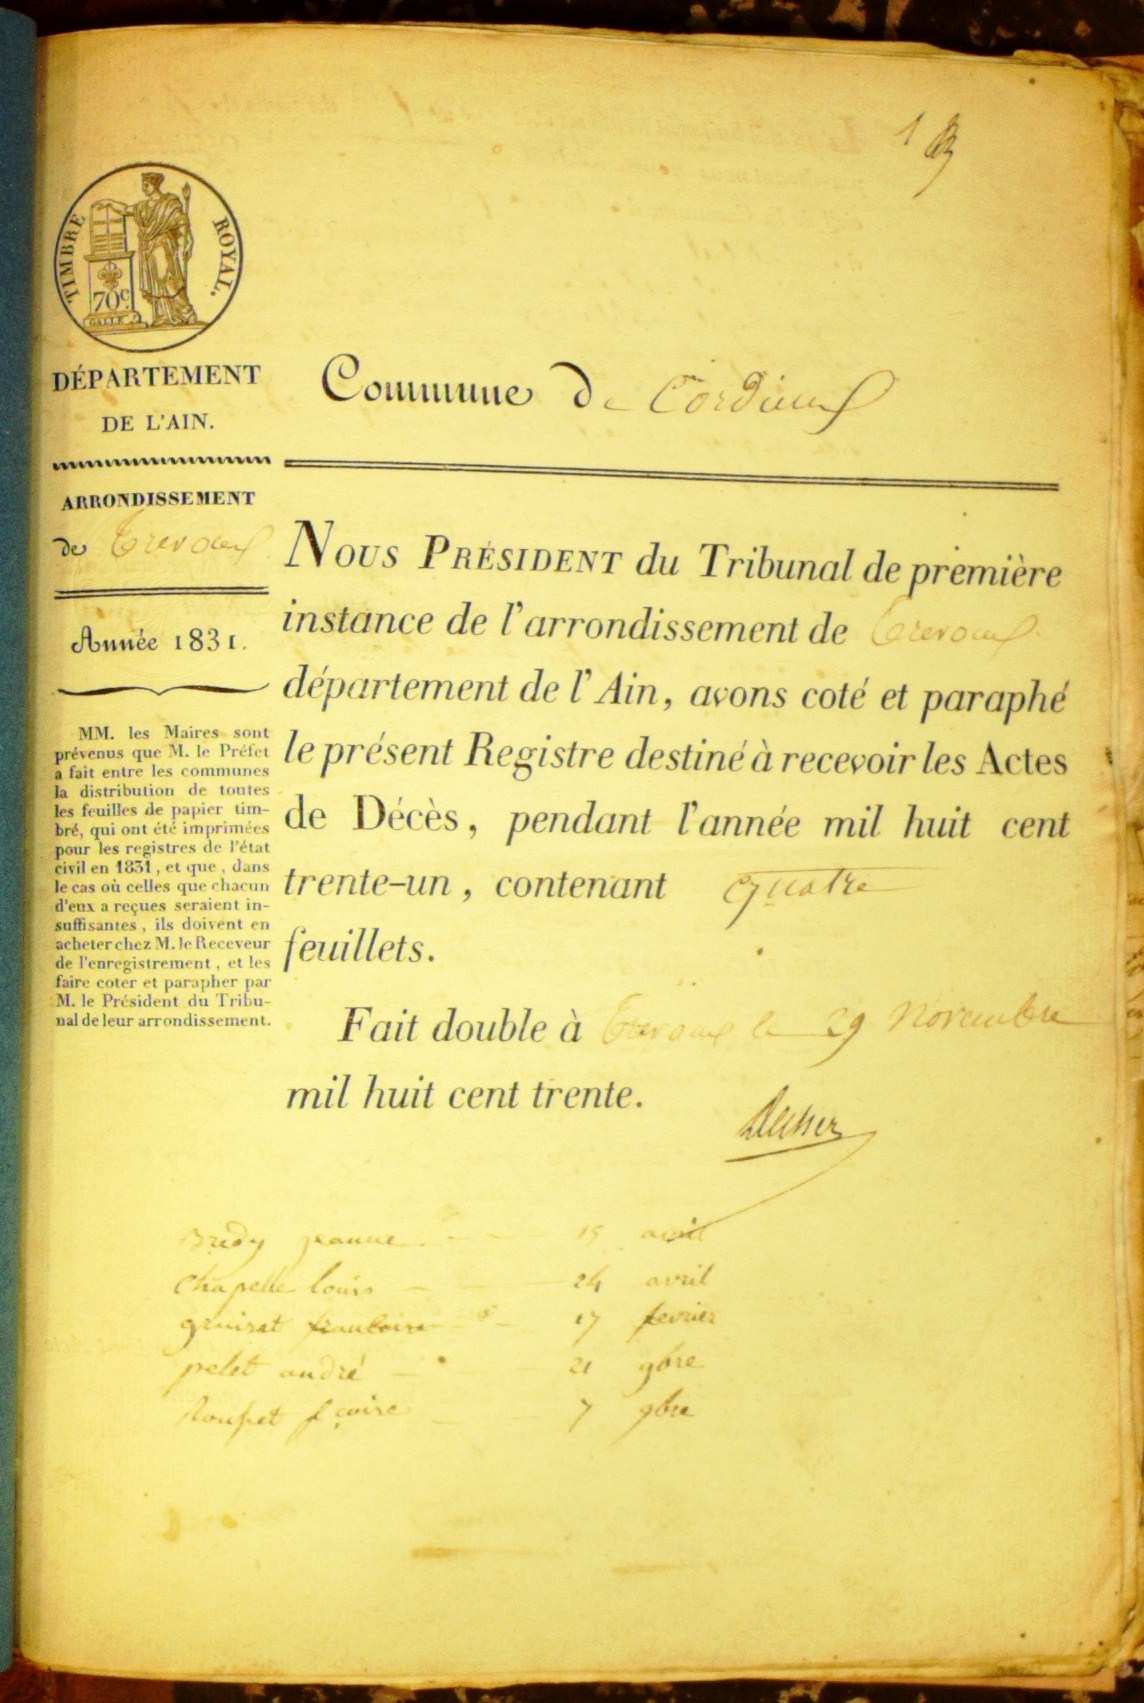 1
TIMBRE ROYAL.
70c
GALLE
DÉPARTEMENT
DE L'AIN.
ARRONDISSEMENT
de Trevoux
Année 1831.
MM. les Maires sont
prévenus que M. le Préfet
a fait entre les communes
la distribution de toutes
les feuilles de papier tim-
bré, qui ont été imprimées
pour les registres de l'état
civil en 1831, et que, dans
le cas où celles que chacun
d'eux a reçues seraient in-
suffisantes, ils doivent en
acheter chez M. le Receveur
de l'enregistrement, et les
faire coter et parapher par
M. le Président du Tribu-
nal de leur arrondissement.
Commune de Cordieux
NOUS PRÉSIDENT du Tribunal de première
instance de l'arrondissement de Trevoux
département de l'Ain, avons coté et paraphé
le présent Registre destiné à recevoir les Actes
de Décès, pendant l'année mil huit cent
trente-un, contenant quatre
feuillets.
Fait double à Trevoux le 29 Novembre
mil huit cent trente.
Bredy jeanne 15 avril
Chapelle louis 24 avril
17 fevrier
pelet andré 21 9bre
fcoise 7 9bre